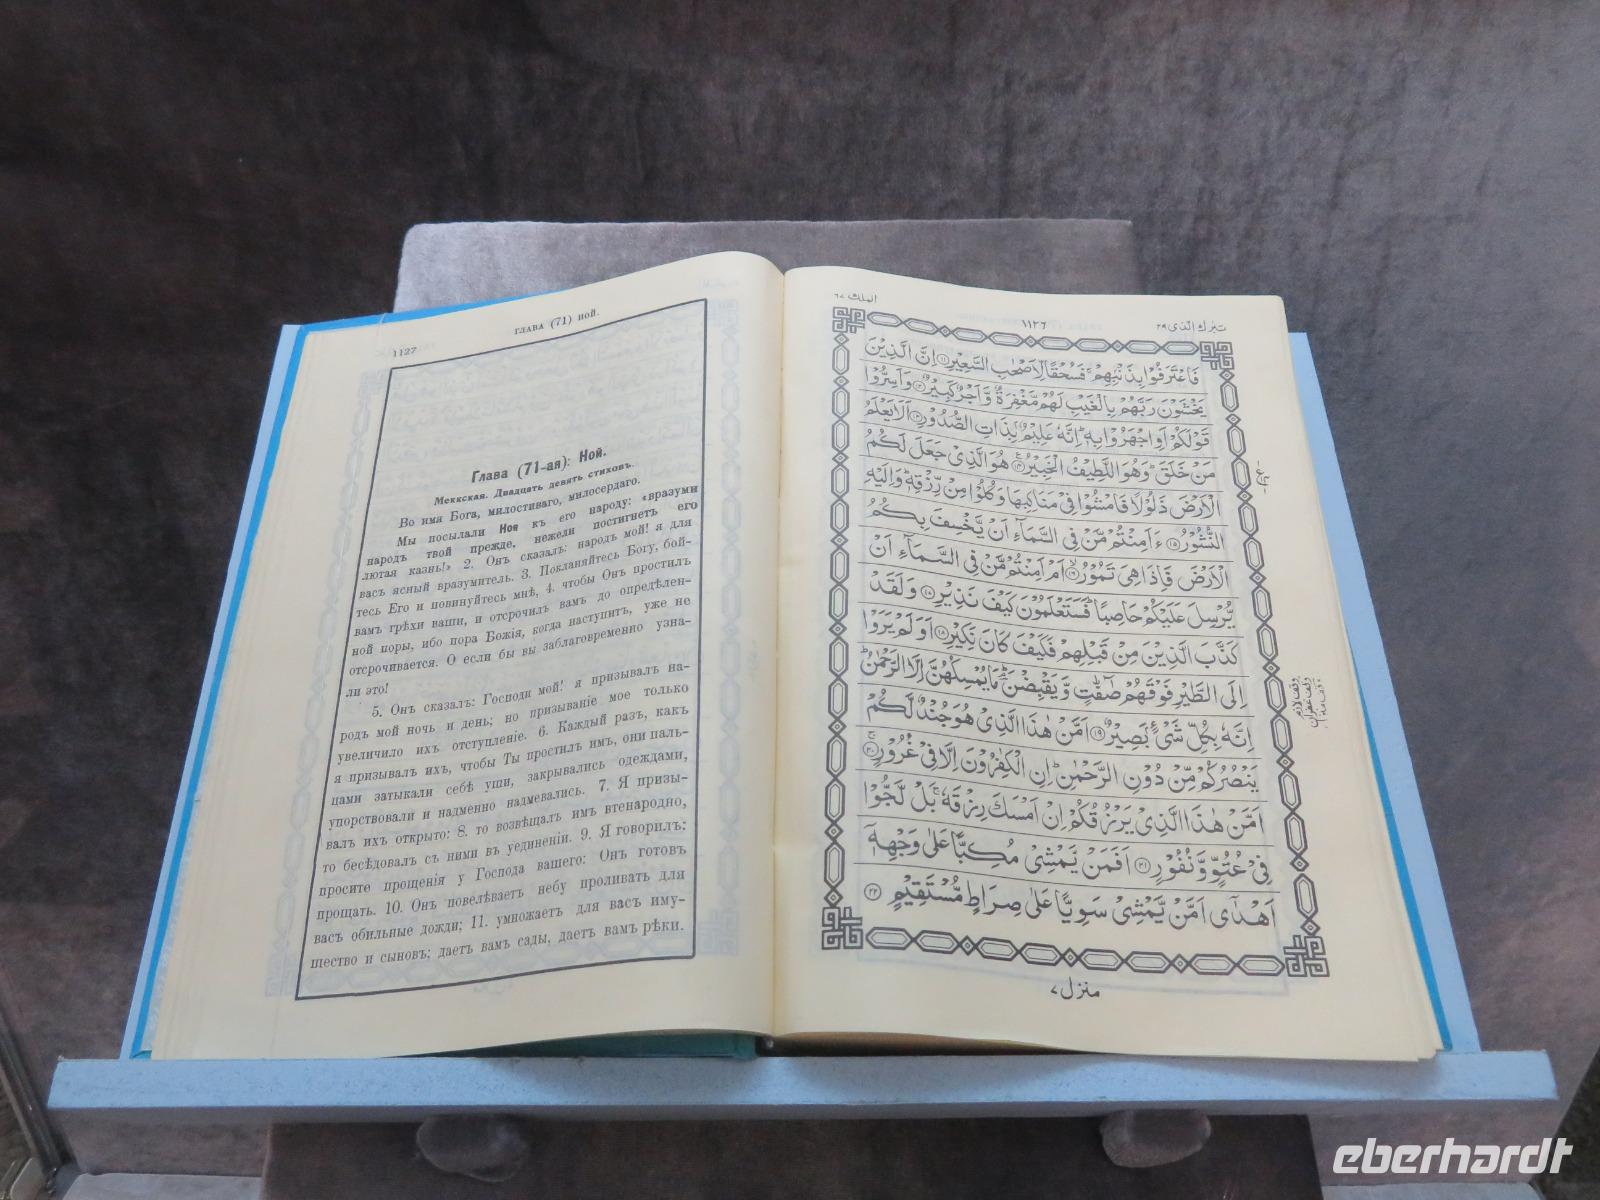 ГЛАВА (71) НОЙ.
1127
Глава (71-ая): Ной.
Меккская. Двадцать девять стиховъ.
Во имя Бога, милостиваго, милосердаго.
Мы посылали Ноя къ его народу: «вразуми
народъ твой прежде, нежели постигнетъ его
лютая казнь!» 2. Онъ сказалъ: народъ мой! я для
васъ ясный вразумитель. 3. Покланяйтесь Богу, бой-
тесь Его и повинуйтесь мнѣ, 4. чтобы Онъ простилъ
вамъ грѣхи ваши, и отсрочилъ вамъ до опредѣлен-
ной поры, ибо пора Божія, когда наступитъ, уже не
отсрочивается. О если бы вы заблаговременно узна-
ли это!
5. Онъ сказалъ: Господи мой! я призывалъ на-
родъ мой ночь и день; но призываніе мое только
увеличило ихъ отступленіе. 6. Каждый разъ, какъ
я призывалъ ихъ, чтобы Ты простилъ имъ, они паль-
цами затыкали себѣ уши, закрывались одеждами,
упорствовали и надменно надмевались. 7. Я призы-
валъ ихъ открыто: 8. то возвѣщалъ имъ втенародно,
то бесѣдовалъ съ ними въ уединеніи. 9. Я говорилъ:
просите прощенія у Господа вашего: Онъ готовъ
прощать. 10. Онъ повелѣваетъ небу проливать для
васъ обильные дожди; 11. умножаетъ для васъ иму-
щество и сыновъ; даетъ вамъ сады, даетъ вамъ рѣки.
تبرك الذی ٢٩ ١١٢٦ الملك ٦٧
فَاعْتَرَفُوْا بِذَنْۢبِهِمْ ۚ فَسُحْقًا لِّاَصْحٰبِ السَّعِيْرِ ۝١١ اِنَّ الَّذِيْنَ
يَخْشَوْنَ رَبَّهُمْ بِالْغَيْبِ لَهُمْ مَّغْفِرَةٌ وَّاَجْرٌ كَبِيْرٌ ۝١٢ وَاَسِرُّوْا
قَوْلَكُمْ اَوِ اجْهَرُوْا بِهٖ ؕ اِنَّهٗ عَلِيْمٌۢ بِذَاتِ الصُّدُوْرِ ۝١٣ اَلَا يَعْلَمُ
مَنْ خَلَقَ ؕ وَهُوَ اللَّطِيْفُ الْخَبِيْرُ ۝١٤ هُوَ الَّذِیْ جَعَلَ لَكُمُ
الْاَرْضَ ذَلُوْلًا فَامْشُوْا فِیْ مَنَاكِبِهَا وَكُلُوْا مِنْ رِّزْقِهٖ ؕ وَاِلَيْهِ
النُّشُوْرُ ۝١٥ ءَاَمِنْتُمْ مَّنْ فِی السَّمَآءِ اَنْ يَّخْسِفَ بِكُمُ
الْاَرْضَ فَاِذَا هِیَ تَمُوْرُ ۝١٦ اَمْ اَمِنْتُمْ مَّنْ فِی السَّمَآءِ اَنْ
يُّرْسِلَ عَلَيْكُمْ حَاصِبًا ؕ فَسَتَعْلَمُوْنَ كَيْفَ نَذِيْرِ ۝١٧ وَلَقَدْ
كَذَّبَ الَّذِيْنَ مِنْ قَبْلِهِمْ فَكَيْفَ كَانَ نَكِيْرِ ۝١٨ اَوَلَمْ يَرَوْا
اِلَی الطَّيْرِ فَوْقَهُمْ صٰٓفّٰتٍ وَّيَقْبِضْنَ ؕ مَا يُمْسِكُهُنَّ اِلَّا الرَّحْمٰنُ ؕ
اِنَّهٗ بِكُلِّ شَیْءٍۭ بَصِيْرٌ ۝١٩ اَمَّنْ هٰذَا الَّذِیْ هُوَ جُنْدٌ لَّكُمْ
يَنْصُرُكُمْ مِّنْ دُوْنِ الرَّحْمٰنِ ؕ اِنِ الْكٰفِرُوْنَ اِلَّا فِیْ غُرُوْرٍ ۝٢٠
اَمَّنْ هٰذَا الَّذِیْ يَرْزُقُكُمْ اِنْ اَمْسَكَ رِزْقَهٗ ۚ بَلْ لَّجُّوْا
فِیْ عُتُوٍّ وَّنُفُوْرٍ ۝٢١ اَفَمَنْ يَّمْشِیْ مُكِبًّا عَلٰی وَجْهِهٖۤ
اَهْدٰۤی اَمَّنْ يَّمْشِیْ سَوِيًّا عَلٰی صِرَاطٍ مُّسْتَقِيْمٍ ۝٢٢
منزل ٧
eberhardt